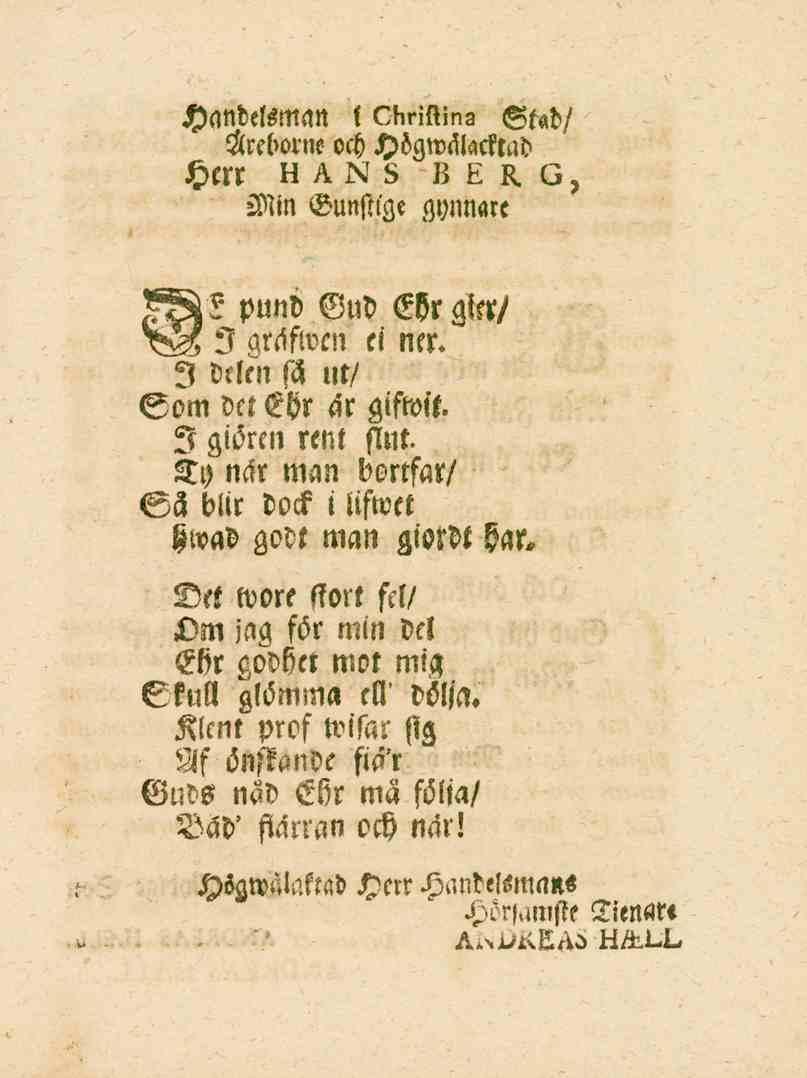 Handelsman i Christina Stad/
Äreborne och Högwälacktad
Herr HANS BERG,
Min Gunstige gynnare
DE pund Gud Ehr gier/
I gräfwen ei ner.
I delen så ut/
Som det Ehr är gifwit.
I giören rent slut.
Ty när man bortfar/
Så blir dock i lifwet
Hwad godt man giordt har.
Det wore stort fel/
Om jag för min del
Ehr godhet mot mig
Skull glömma ell' dölja.
Klent prof wisar sig
Af önskande siä'r
Guds nåd Ehr må följa/
Båd' fiärran och när!
Högwälaktad Herr Handelsmans
Hörsamste Tienare
ANDREAS HÆLL